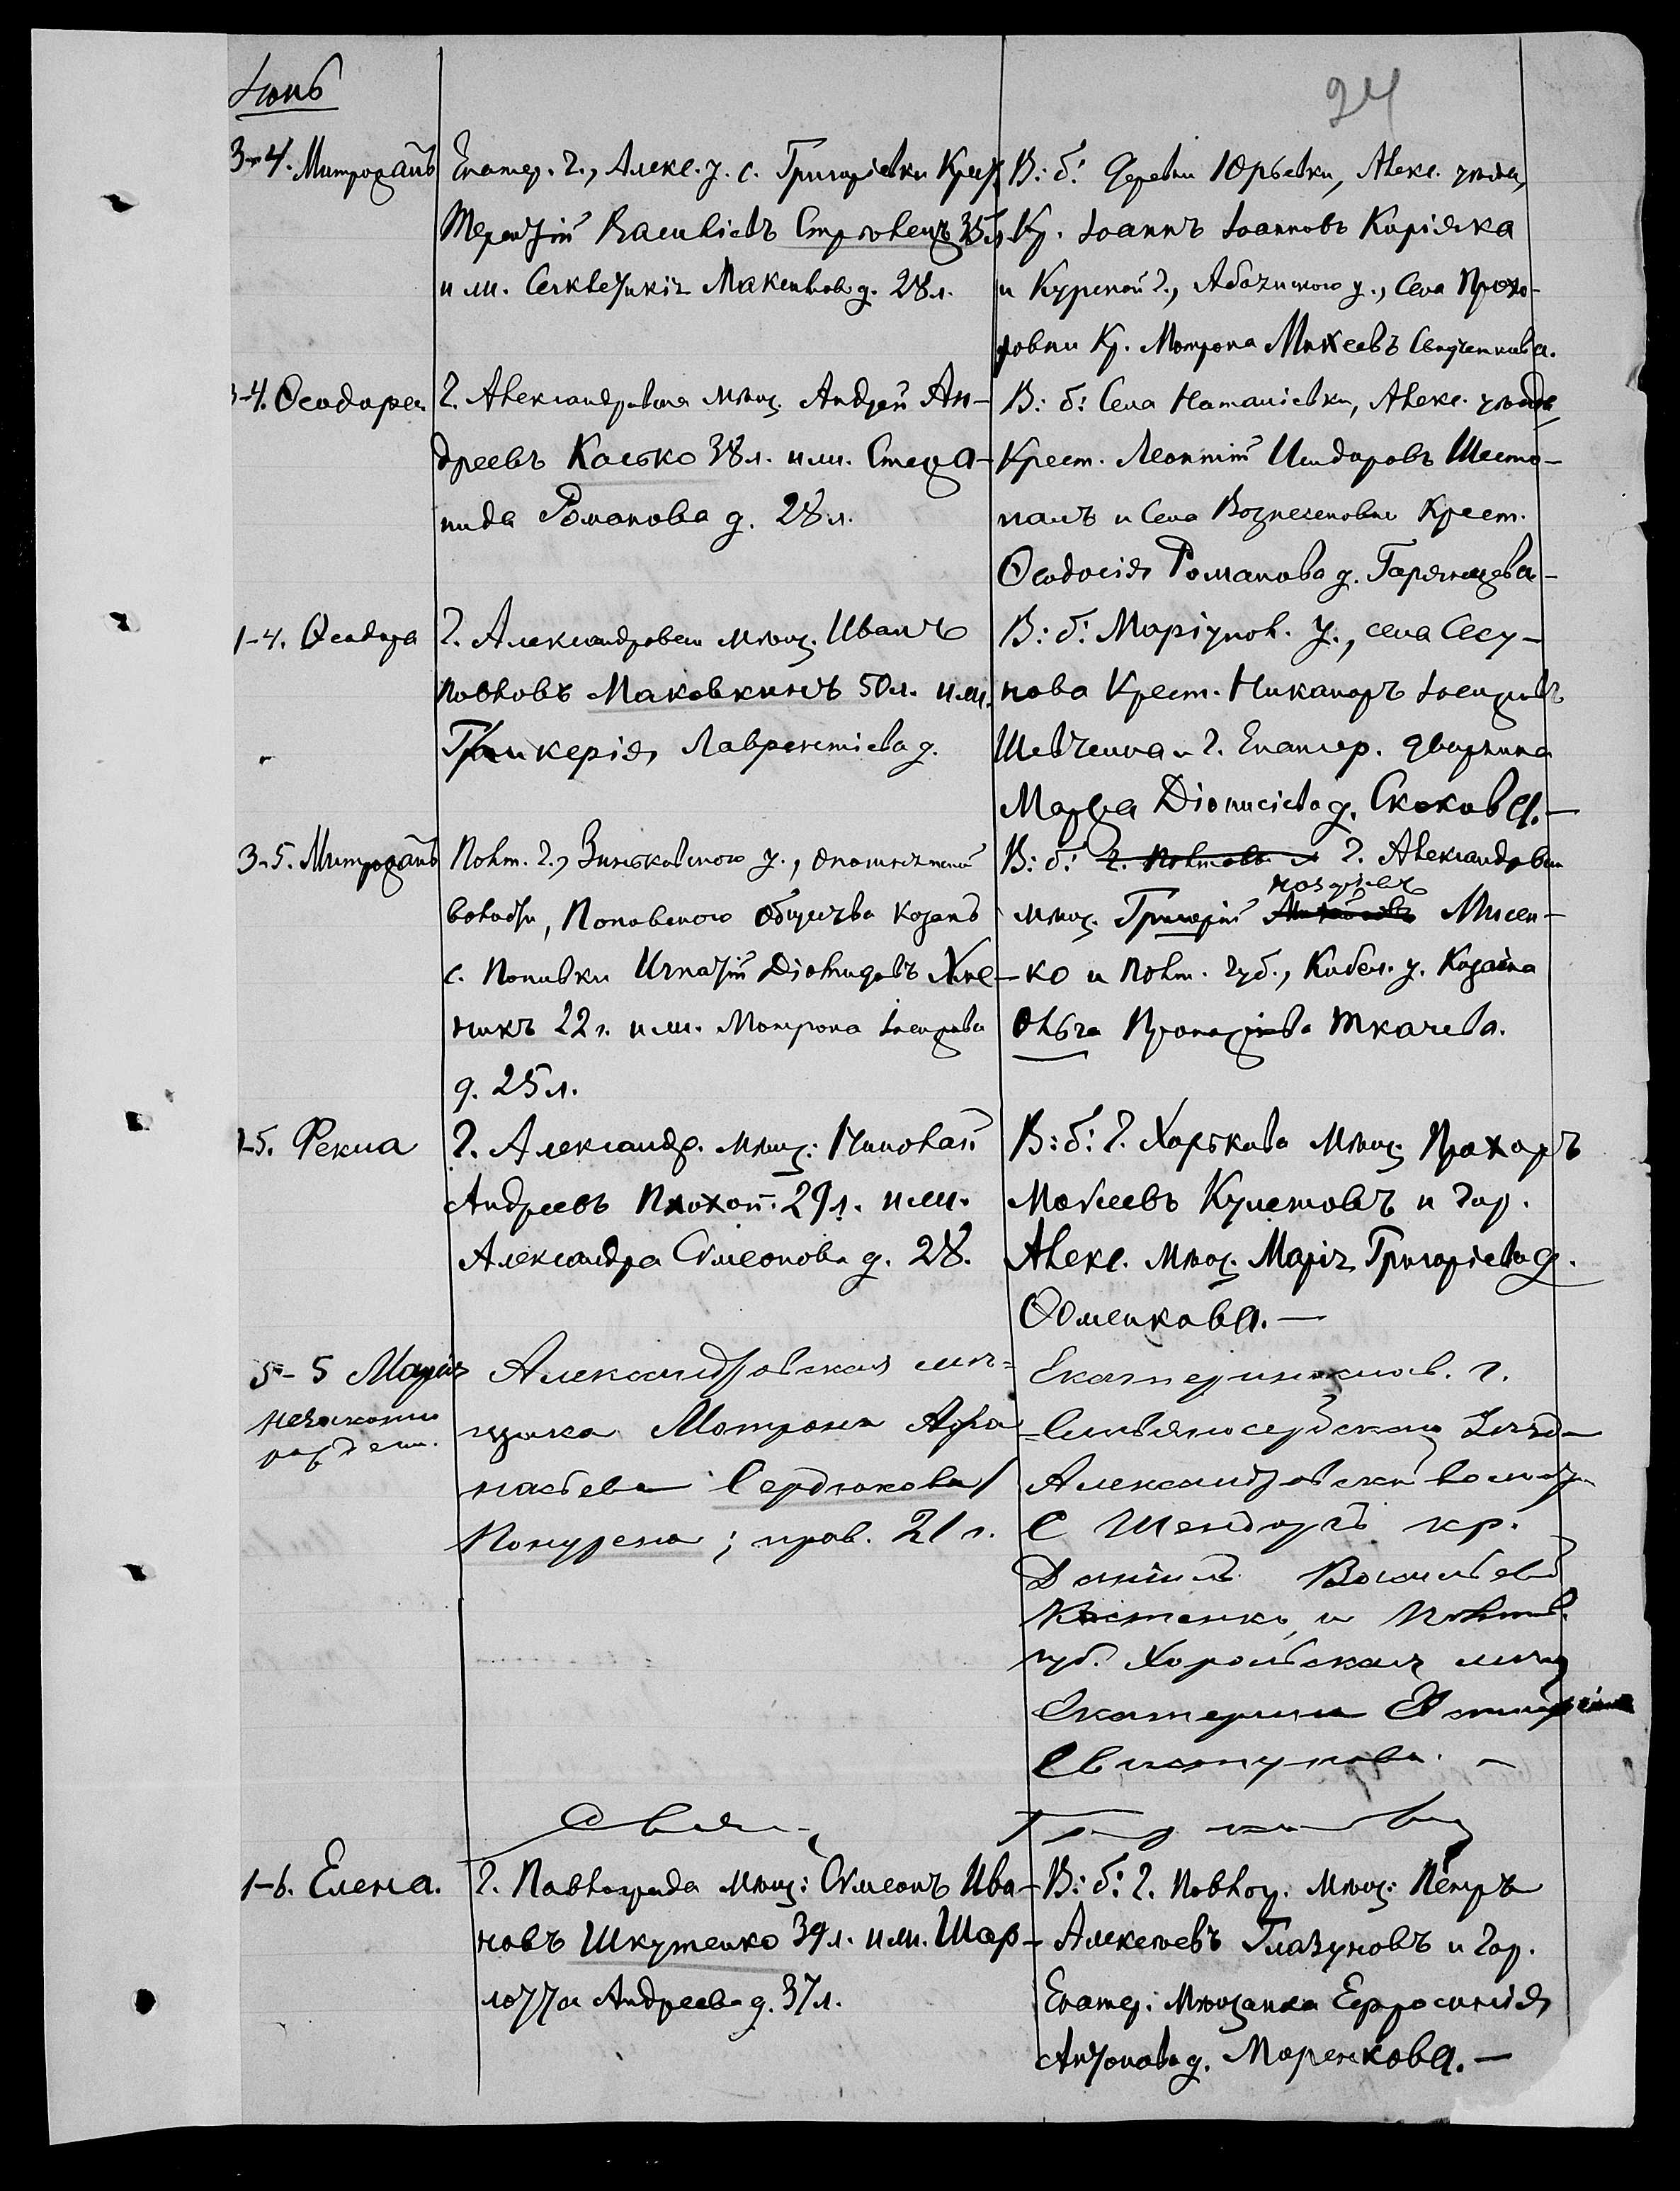 Іюнь
24
3-4. Митрофанъ
Екатер. г., Алекс. у. с. Григорiевки Крес.
Терентiй Василiевъ Стрѣлецъ 35 л.
и ж. Максимова д. 28 л.
В: б: Деревни Юрьевки, Алекс. уѣзда,
Кр. Іоаннъ Іоанновъ Карiяка
и Курской г., Абаянскаго у., Села Прохо-
ровки Кр. Матрона Михеевъ
3-4. Ѳеодоръ
Г. Александровска мѣщ. Андрей Ан-
дреевъ Касько 38 л. и ж. Стефа-
нида Романова д. 28 л.
В: б: Села Наталiевки, Алекс. уѣзда
Крест. Леонтiй Исидоровъ Шесто-
палъ и Села Вознесеновки Крест.
Ѳеодосiя Романова д. Гарянцева-
1-4. Ѳеодора
Г. Александровска мѣщ. Иванъ
Павловъ Маковкинъ 50 л. и ж.
Гликерiя Лаврентiева д.
В: б: Марiупол. у., села Сесу-
нова Крест. Никаноръ Іосифовъ
Шевченко и г. Екатер. дворянка
Марѳа Дiонисiева д. Скокова.-
3-5. Митрофанъ
Полт. г., Зиньковскаго у., Опошнянской
волости, Поповскаго общества козакъ
с. Поповки Игнатiй Дiомидовъ Хме-
никъ 22 г. и ж. Матрона Іосифова
д. 25 л.
В: б: г. Полтавы и г. Александров.
мѣщ. Григорiй Мисен-
ко и Полт. губ., Кобел. у. Козачка
Ольга Ткачева.
1-5. Фекла
Г. Александр. мѣщ: Николай
Андреевъ Плохой 29 л. и ж.
Александра Симеонова д. 28.
В: б: г. Харькова мѣщ. Прохоръ
Моѵсеевъ Кулешовъ и Гор.
Алекс. мѣщ. Марiя Григорiева д.
Ѳоменкова.-
5-5 Марiя
незаконно
рожден.
Александровская мѣ-
щанка Матрона Афа
насьева Сердюкова/
; прав. 21 г.
Екатеринослав. г.
Славяносербскаго Уѣзда
Александровской волости
С кр.
Данiилъ Васильевъ
Костенко и Полтав.
губ. Хорольская мѣщ
Екатерина
1-6. Елена.
Г. Павлограда мѣщ: Симеонъ Ива-
новъ Шкутенко 39 л. и ж. Шар-
лотта Андреева д. 37 л.
В: б: г. Павлогр. мѣщ: Петръ
Алексѣевъ Глазуновъ и Гор.
Екатер. мѣщанка Ефросинiя
Антонова д. Маренкова.-